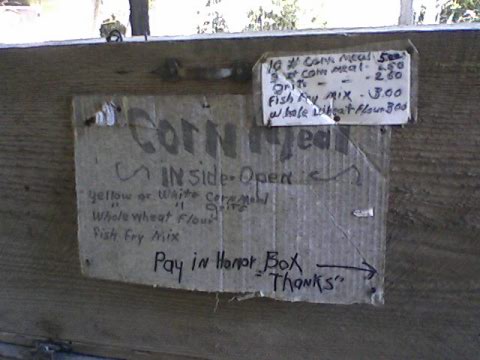 10 # Corn Meal 5.00
5 # Corn Meal - 2.50
Grits - - 2.50
Fish Fry Mix - 3.00
Whole Wheat Flour 3.00
Corn Meal
INside-Open
Yellow or White Corn Meal
" " Grits
Whole Wheat Flour
Fish Fry Mix
Pay in Honor Box
"Thanks"